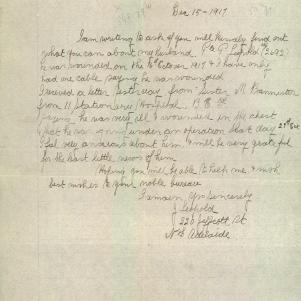 Dec 15-1917
I am writing to ask if you will kindly find out
what you can about my husband Pte G. Leopold (3692)
he was wounded on the October 1917 & I have only
had one cable saying he was wounded
I received a letter yesterday from Sister M Bannister
from 11 Stationery Hospital
saying he was very ill & wounded in the chest
that he was going under an operation that day 29th Oct
I feel very anxious about him & will be very grateful
for the least little news of him
Hoping you will be able to help me & wish
best wishes to your noble bureau
I remain Yrs Sincerely
J Leopold
220 Jeffcott St
Nth Adelaide